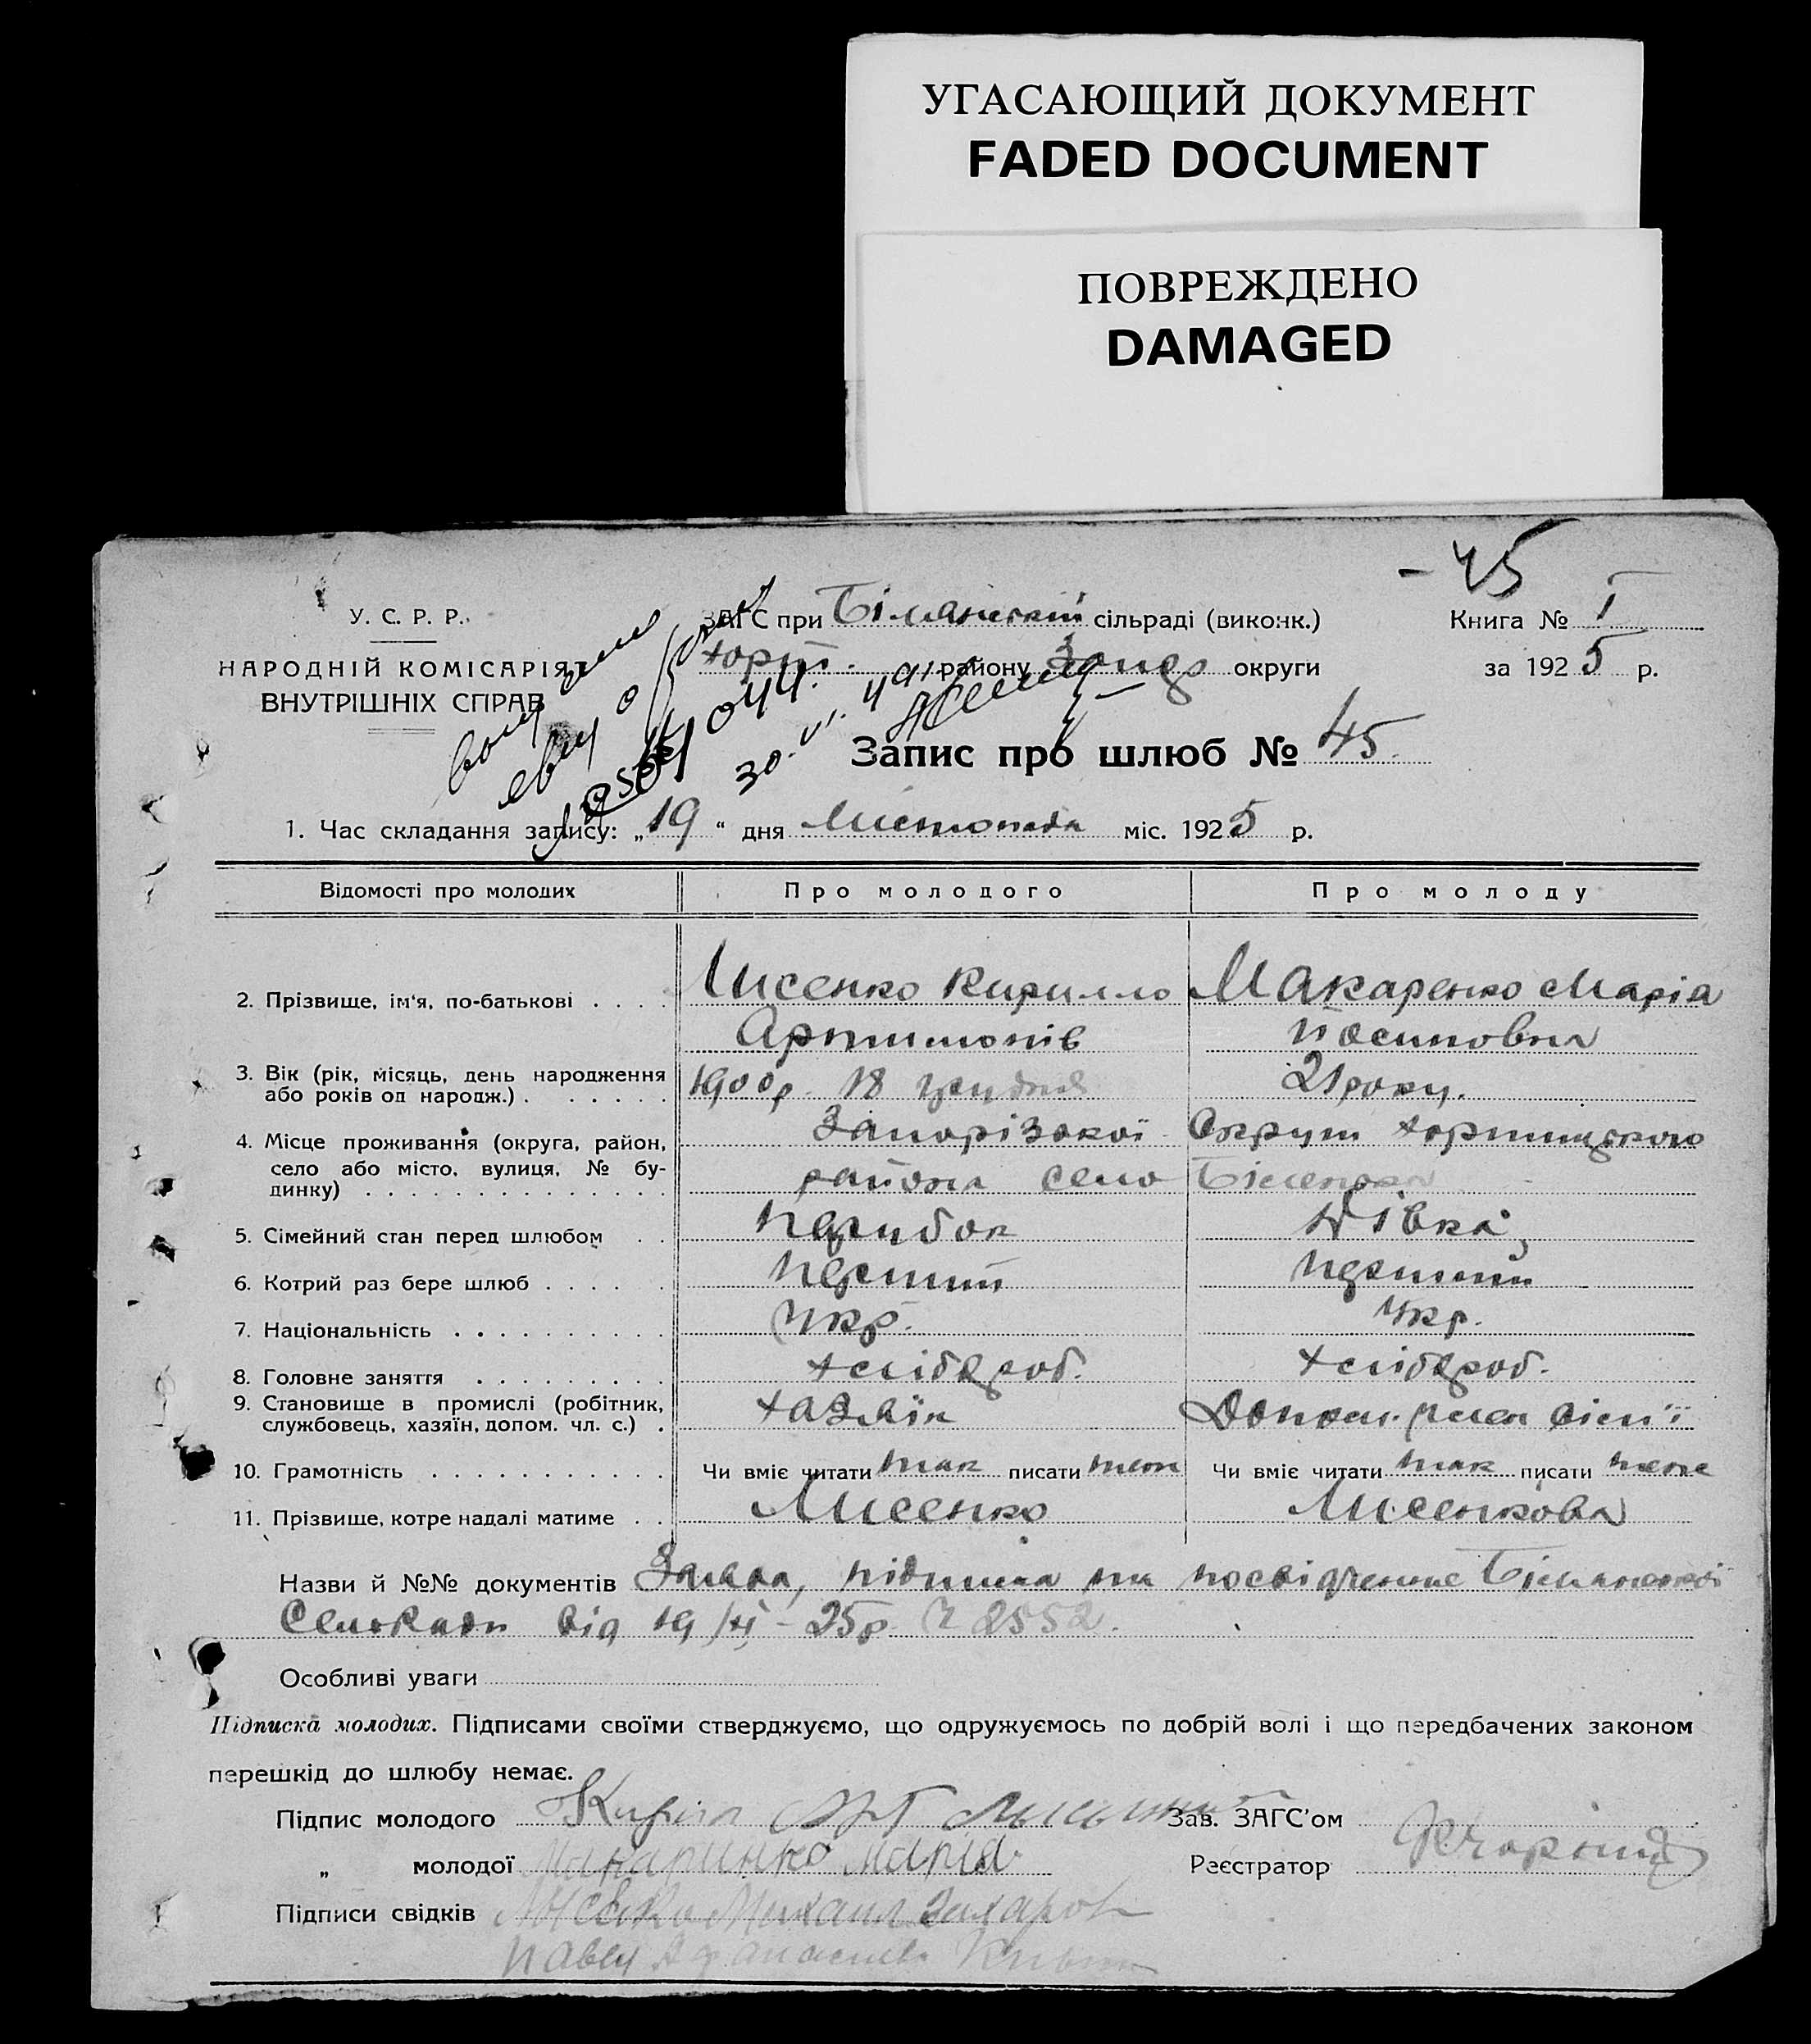 УГАСАЮЩИЙ ДОКУМЕНТ
FADED DOCUMENT
ПОВРЕЖДЕНО
DAMAGED
- 45
У. С. Р. Р.
НАРОДНІЙ КОМІСАРІЯТ
ВНУТРІШНІХ СПРАВ
ЗАГС при сільраді (виконк.)
Хорт. району Запор округи
Книга № I
за 1925 р.
Запис про шлюб № 45.
1. Час складання запису: „19“ дня Листопада міс. 1925 р.
Відомості про молодих Про молодого Про молоду
2. Прізвище, ім'я, по-батькові . . . . Лисенко Кирилло Макаренко Марія
Йосиповна
3. Вік (рік, місяць, день народження
або років од народж.) . . . . . . 1900р. 18 грудня 21 року.
4. Місце проживання (округа, район, Запорізької Округи Хортицького
село або місто, вулиця, № бу-
динку) . . . . . . . . . . . . . . района село
5. Сімейний стан перед шлюбом . . Парубок Дівка
6. Котрий раз бере шлюб . . . . . Перший Перший
7. Національність . . . . . . . . . . Укр. Укр.
8. Головне заняття . . . . . . . . . Хлібороб. Хлібороб.
9. Становище в промислі (робітник,
службовець, хазяїн, допом. чл. с.) . Хазяїн Допом. член сім'ї
10. Грамотність . . . . . . . . . . . Чи вміє читати так писати теж Чи вміє читати так писати теж
11. Прізвище, котре надалі матиме . . Лисенко Лисенкова
Назви й №№ документів Заява, підписка та посвідченне
СельРади від 19/XI - 25р. 2552.
Особливі уваги
Підписка молодих. Підписами своїми стверджуємо, що одружуємось по добрій волі і що передбачених законом
перешкід до шлюбу немає.
Підпис молодого Зав. ЗАГС'ом
„ молодої Макаринко Марія Реєстратор
Підписи свідків Михаил Захаров
Павел